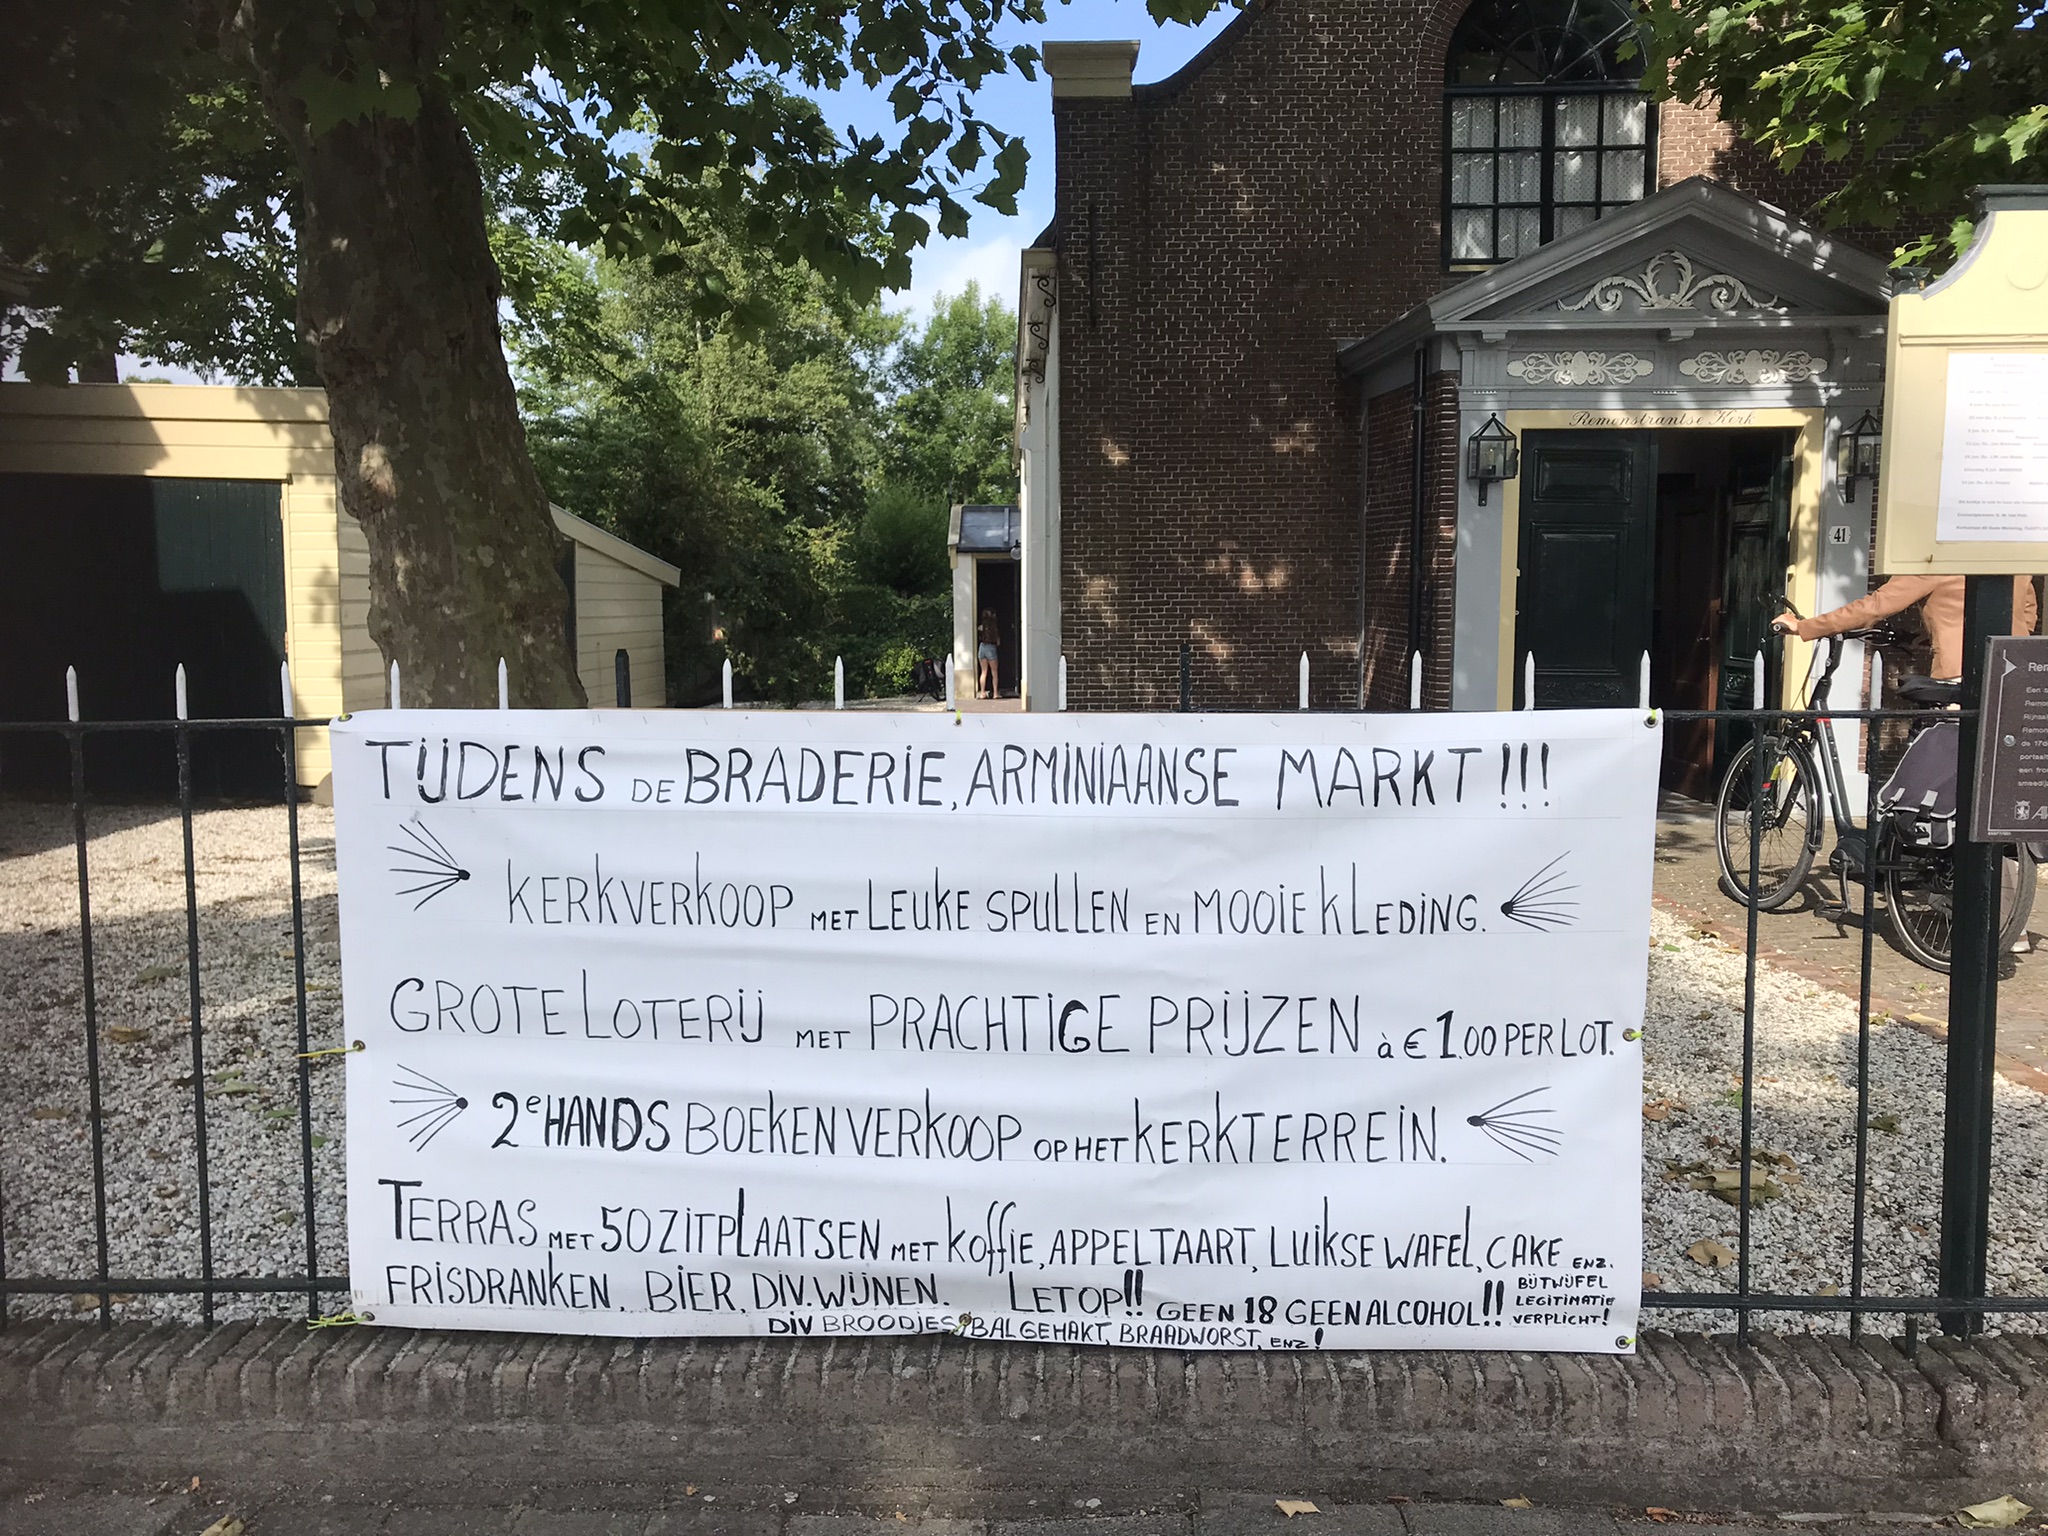 Remonstrantse Kerk
41
TIJDENS DE BRADERIE, ARMINIAANSE MARKT !!!
KERKVERKOOP MET LEUKE SPULLEN EN MOOIE KLEDING.
GROTE LOTERIJ MET PRACHTIGE PRIJZEN à € 1.00 PER LOT.
2e HANDS BOEKENVERKOOP OP HET KERKTERREIN.
TERRAS MET 50 ZITPLAATSEN MET KOFFIE, APPELTAART, LUIKSE WAFEL, CAKE ENZ.
FRISDRANKEN, BIER, DIV. WIJNEN. LET OP!! GEEN 18 GEEN ALCOHOL!! BIJ TWIJFEL
LEGITIMATIE
VERPLICHT!
DIV BROODJES, BAL GEHAKT, BRAADWORST, ENZ!